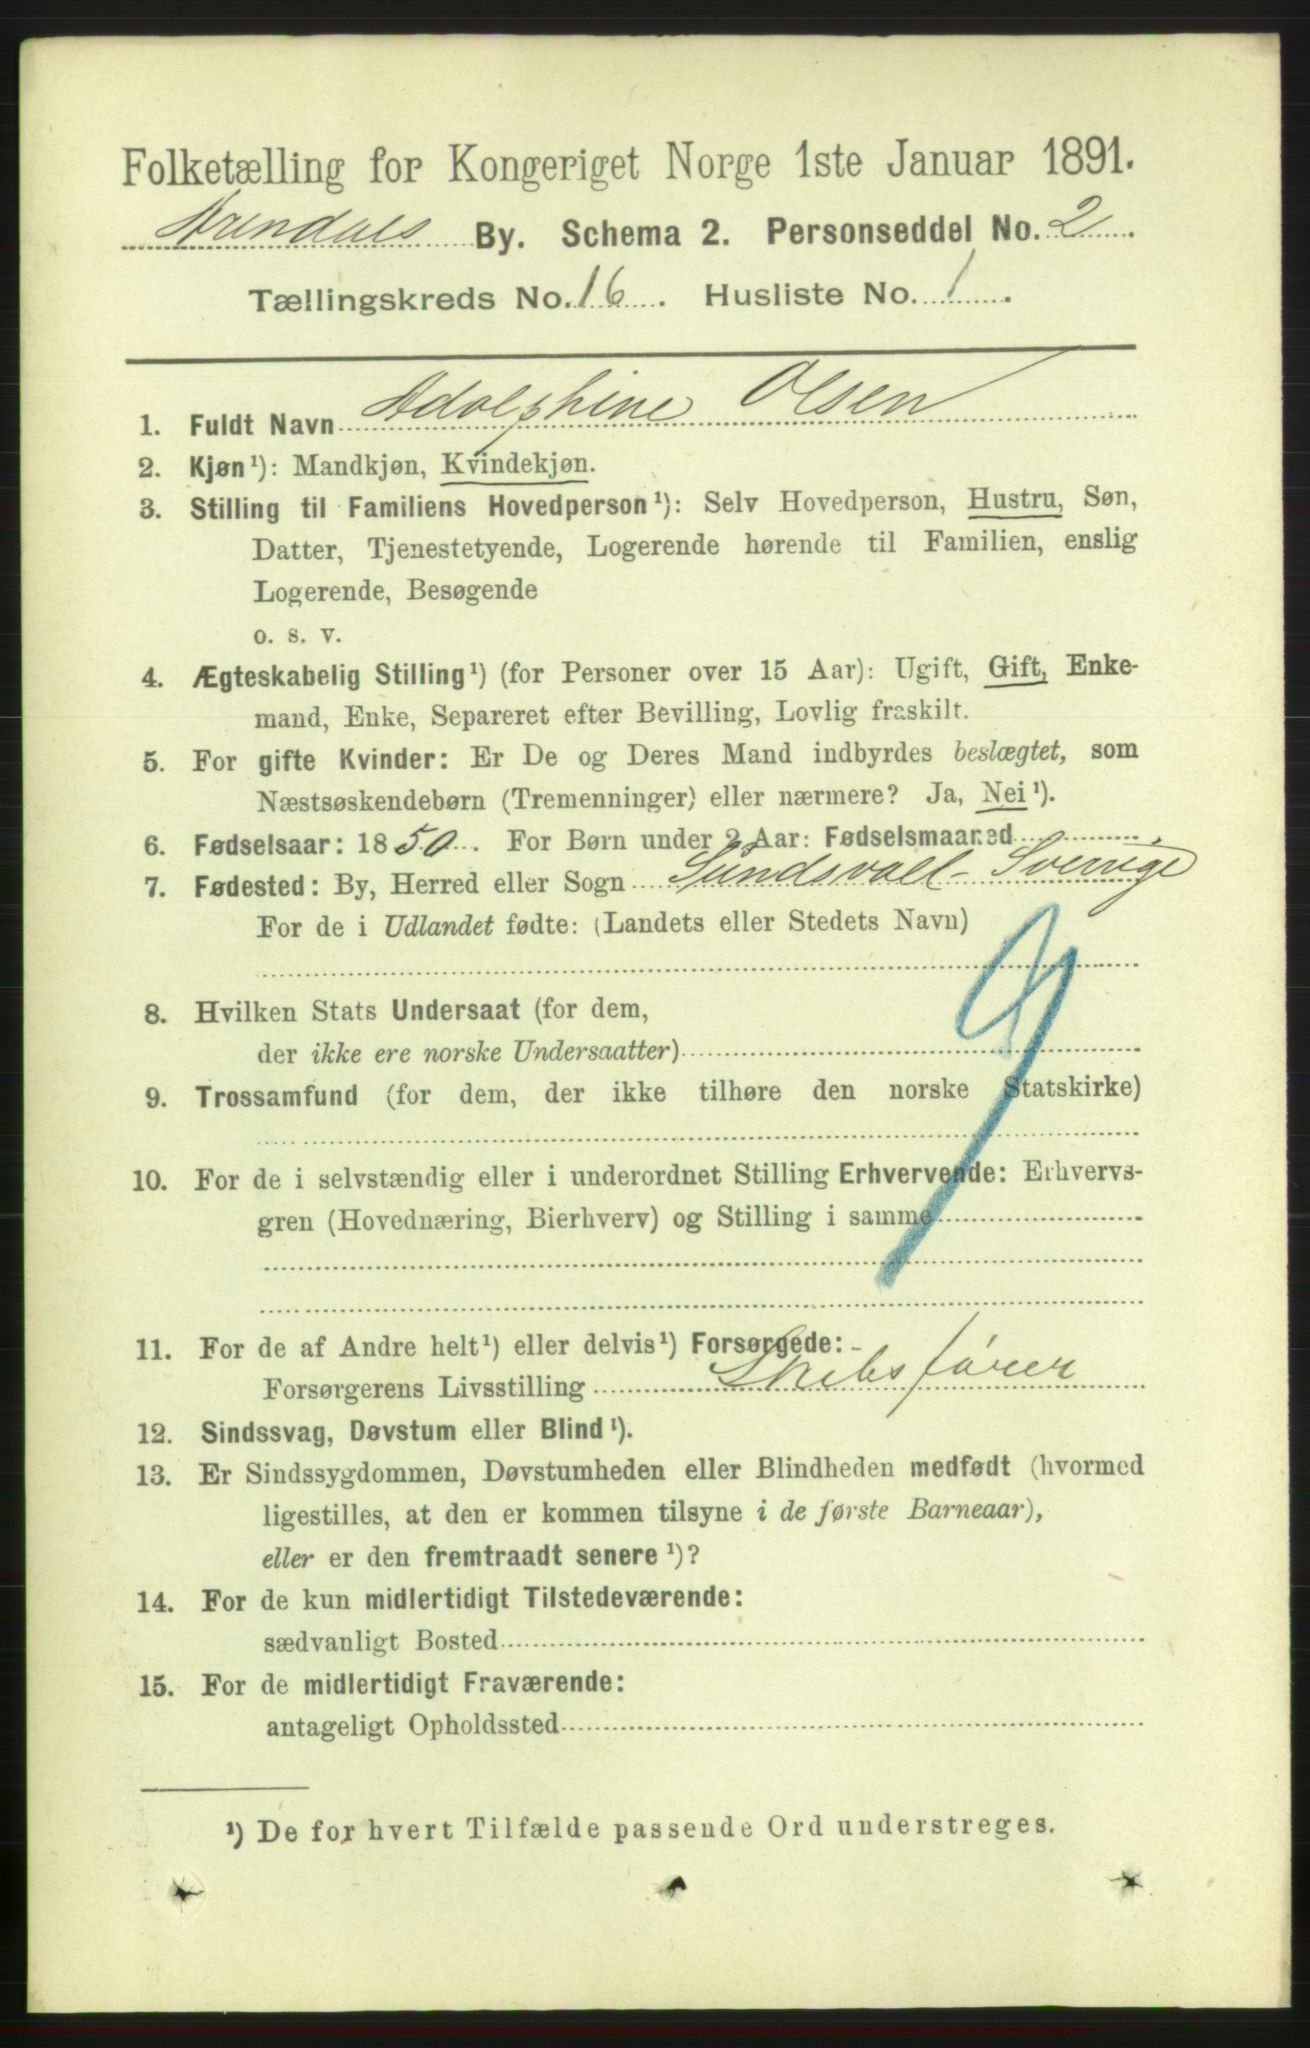 Folketælling for Kongeriget Norge 1ste Januar 1891.
Arendals By. Schema 2. Personseddel No. 2.
Tællingskreds No. 16. Husliste No. 1.
1. Fuldt Navn Adolphine Olsen
2. Kjøn¹): Mandkjøn, Kvindekjøn.
3. Stilling til Familiens Hovedperson¹): Selv Hovedperson, Hustru, Søn,
Datter, Tjenestetyende, Logerende hørende til Familien, enslig
Logerende, Besøgende
o. s. v.
4. Ægteskabelig Stilling¹) (for Personer over 15 Aar): Ugift, Gift, Enke-
mand, Enke, Separeret efter Bevilling, Lovlig fraskilt.
5. For gifte Kvinder: Er De og Deres Mand indbyrdes beslægtet, som
Næstsøskendebørn (Tremenninger) eller nærmere? Ja, Nei¹).
6. Fødselsaar: 1850. For Børn under 2 Aar: Fødselsmaaned
7. Fødested: By, Herred eller Sogn Sundsvall - Sverrige
For de i Udlandet fødte: (Landets eller Stedets Navn)
8. Hvilken Stats Undersaat (for dem,
der ikke ere norske Undersaatter)
9. Trossamfund (for dem, der ikke tilhøre den norske Statskirke)
9
10. For de i selvstændig eller i underordnet Stilling Erhvervende: Erhvervs-
gren (Hovednæring, Bierhverv) og Stilling i samme
11. For de af Andre helt¹) eller delvis¹) Forsørgede: -
Forsørgerens Livsstilling Skibsfører
12. Sindssvag, Døvstum eller Blind¹).
13. Er Sindssygdommen, Døvstumheden eller Blindheden medfødt (hvormed
ligestilles, at den er kommen tilsyne i de første Barneaar),
eller er den fremtraadt senere¹)?
14. For de kun midlertidigt Tilstedeværende:
sædvanligt Bosted
15. For de midlertidigt Fraværende:
antageligt Opholdssted
¹) De for hvert Tilfælde passende Ord understreges.